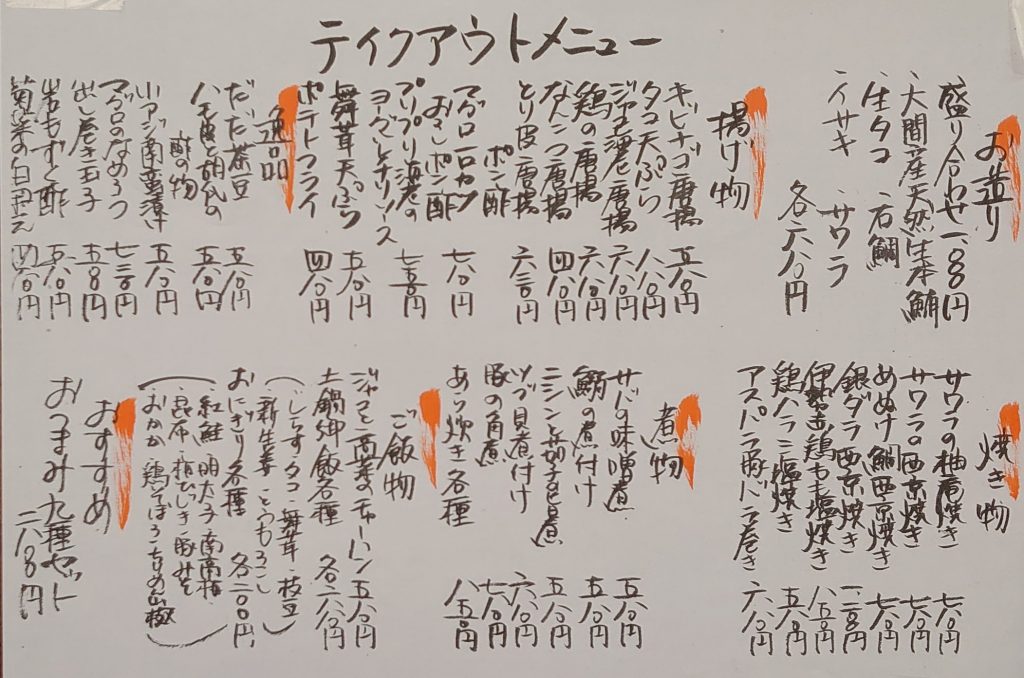 ティクアウトメニュー
お造り
盛り合わせ 一八〇〇円
大間産天然生本鮪
生タコ 石鯛
イサキ サワラ
各六八〇円
揚げ物
キビナゴ唐揚 五八〇円
タコ天ぷら 六八〇円
ジャコ海老唐揚 六八〇円
鶏の唐揚 六八〇円
なんこつ唐揚 四八〇円
とり皮唐揚 六三〇円
ポン酢
マグロ一口カツ
おろしポン酢 七八〇円
プリプリ海老の
ヨーグルトチリソース 七五〇円
舞茸天ぷら 五八〇円
ポテトフライ 四八〇円
逸品
だだ茶豆 五八〇円
ハモ皮と胡瓜の
酢の物 五八〇円
小アジ南蛮漬け 五八〇円
マグロのなめろう 七三〇円
出し巻き玉子 五八〇円
岩もずく酢 五八〇円
菊菜の白和え 四八〇円
焼き物
サワラの柚庵焼き 七八〇円
サワラの西京焼き 七八〇円
めぬけ鯛西京焼き 七八〇円
銀ダラ西京焼き 一二八〇円
伊勢赤鶏もも塩焼き 八五〇円
鶏ハラミ塩焼き 五八〇円
アスパラ豚バラ巻き 六八〇円
煮物
サバの味噌煮 五八〇円
鯛の煮付け 五八〇円
ニシンと茄子の煮 五八〇円
ツブ貝煮付け 六八〇円
豚の角煮 七八〇円
あら炊き各種 八五〇円
ご飯物
ジャコと高菜のチャーハン 五八〇円
土鍋御飯各種 各一八〇〇円
(しらす タコ 舞茸 枝豆
新生姜 とうもろこし)
おにぎり各種 各二〇〇円
(紅鮭 明太子 南高梅
昆布 梅ひじき 豚みそ
おかか 鶏そぼろ ちりめん山椒)
おすすめ
おつまみ九種セット
二八〇〇円